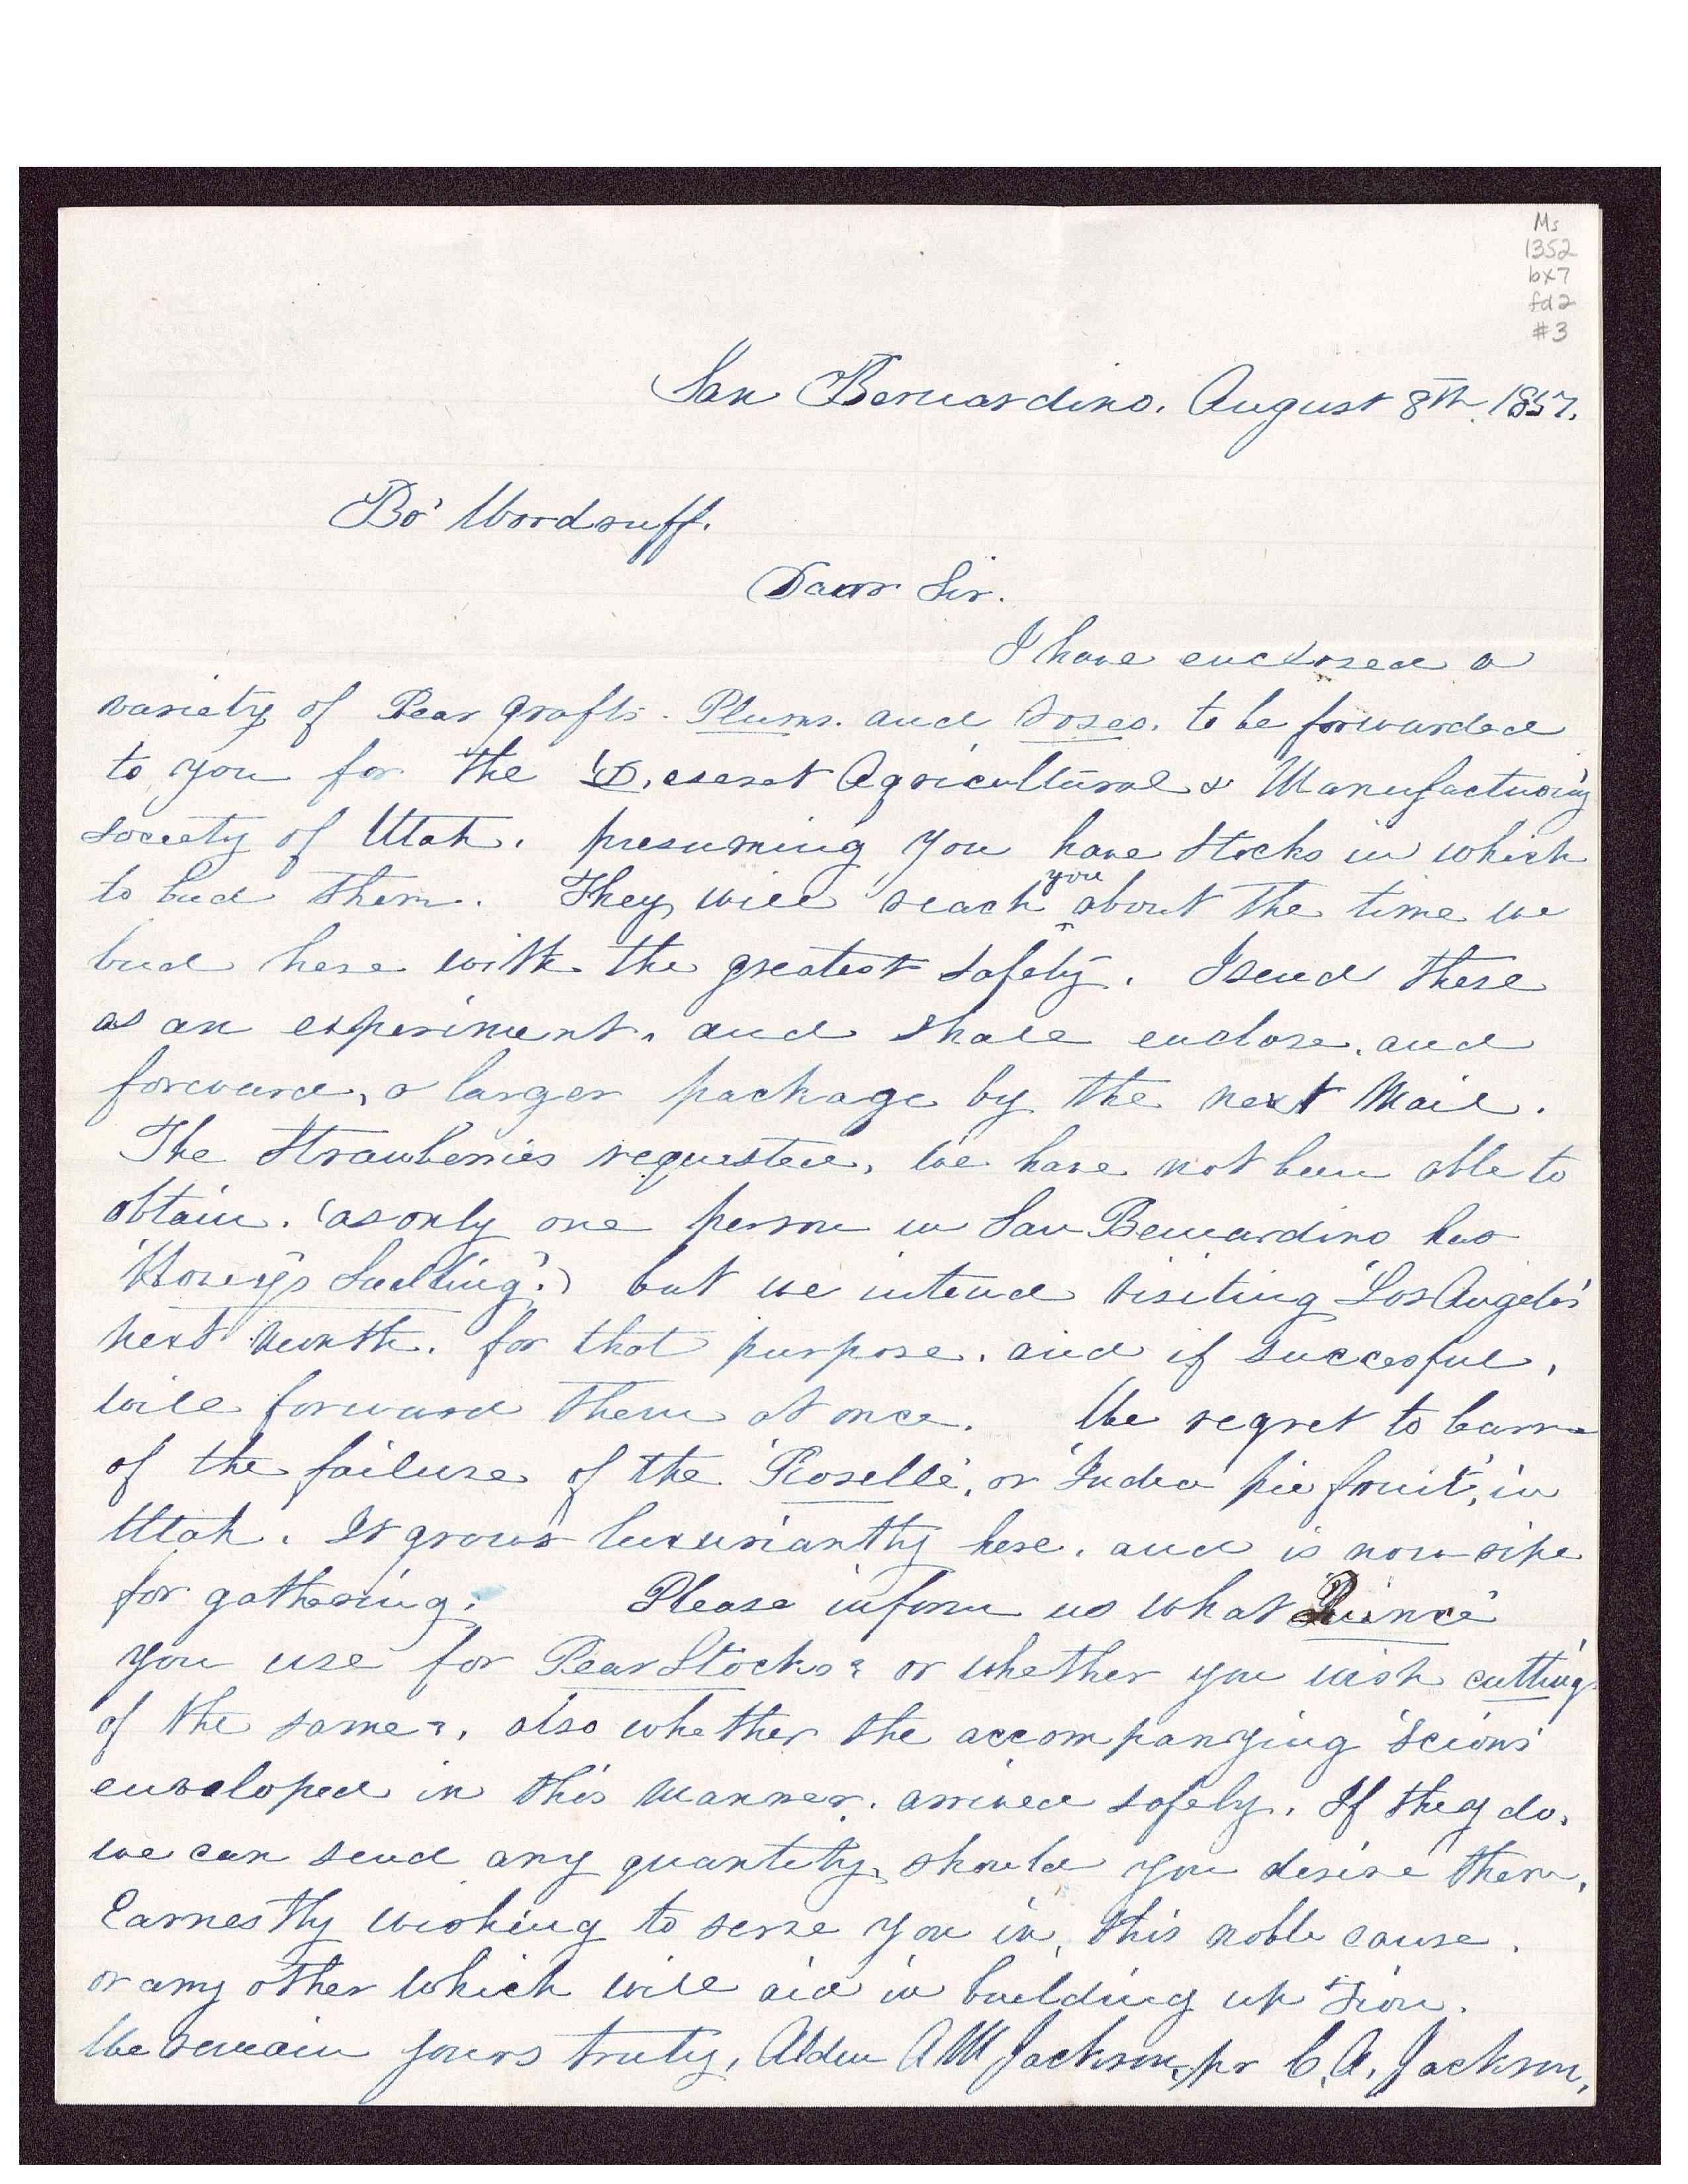 Ms
1352
bx7
fd2
#3
San Bernardino. August 8th. 1857.
Bo' Woodruff.
Dear Sir.
I have enclosed a
variety of Pear grafts. Plums. and roses. to be forwarded
to you for the 'Deseret Agricultural & Manufacturing
society of Utah. presuming you have stocks in which
to bud them. They will reach you about the time we
bud here with the greatest safety. I send these
as an experiment. and shall enclose. and
forward, a larger package by the next Mail.
The Strawberries requested, we have not been able to
obtain. (as only one person in San Bernardino has
'Hovey's Seedling'.) but we intend visiting 'Los Angeles'
next month. for that purpose. and if succesful,
will forward them at once. We regret to learn
of the failure of the 'Roselle', or 'India pie fruit', in
Utah. It grows luxuriantly here. and is now ripe
for gathering. Please inform us what Quince
you use for Pear Stocks? or whether you wish cuttings
of the same?. also whether the accompanying 'scions'
enveloped in this manner. arrived safely. If they do.
we can send any quantity, should you desire them.
Earnestly wishing to serve you in, this noble cause.
or any other which will aid in building up Zion.
We remain yours truly, Alden A M Jackson, pr C. A. Jackson.